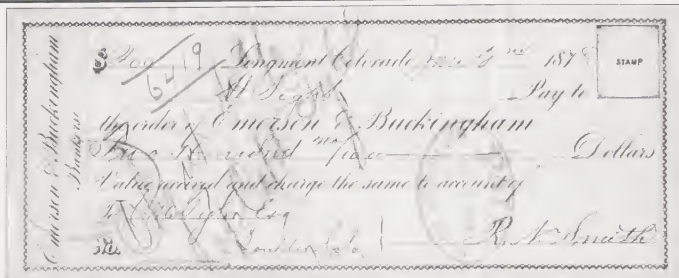 Emerson & Buckingham
Bankers
6419
Longmont Colorado 2nd 187
STAMP
At Sight Pay to
the order of Emerson & Buckingham
Hundred no/100 Dollars
Value received and charge the same to account of
To Esq
Boulder Colo
R. N. Smith